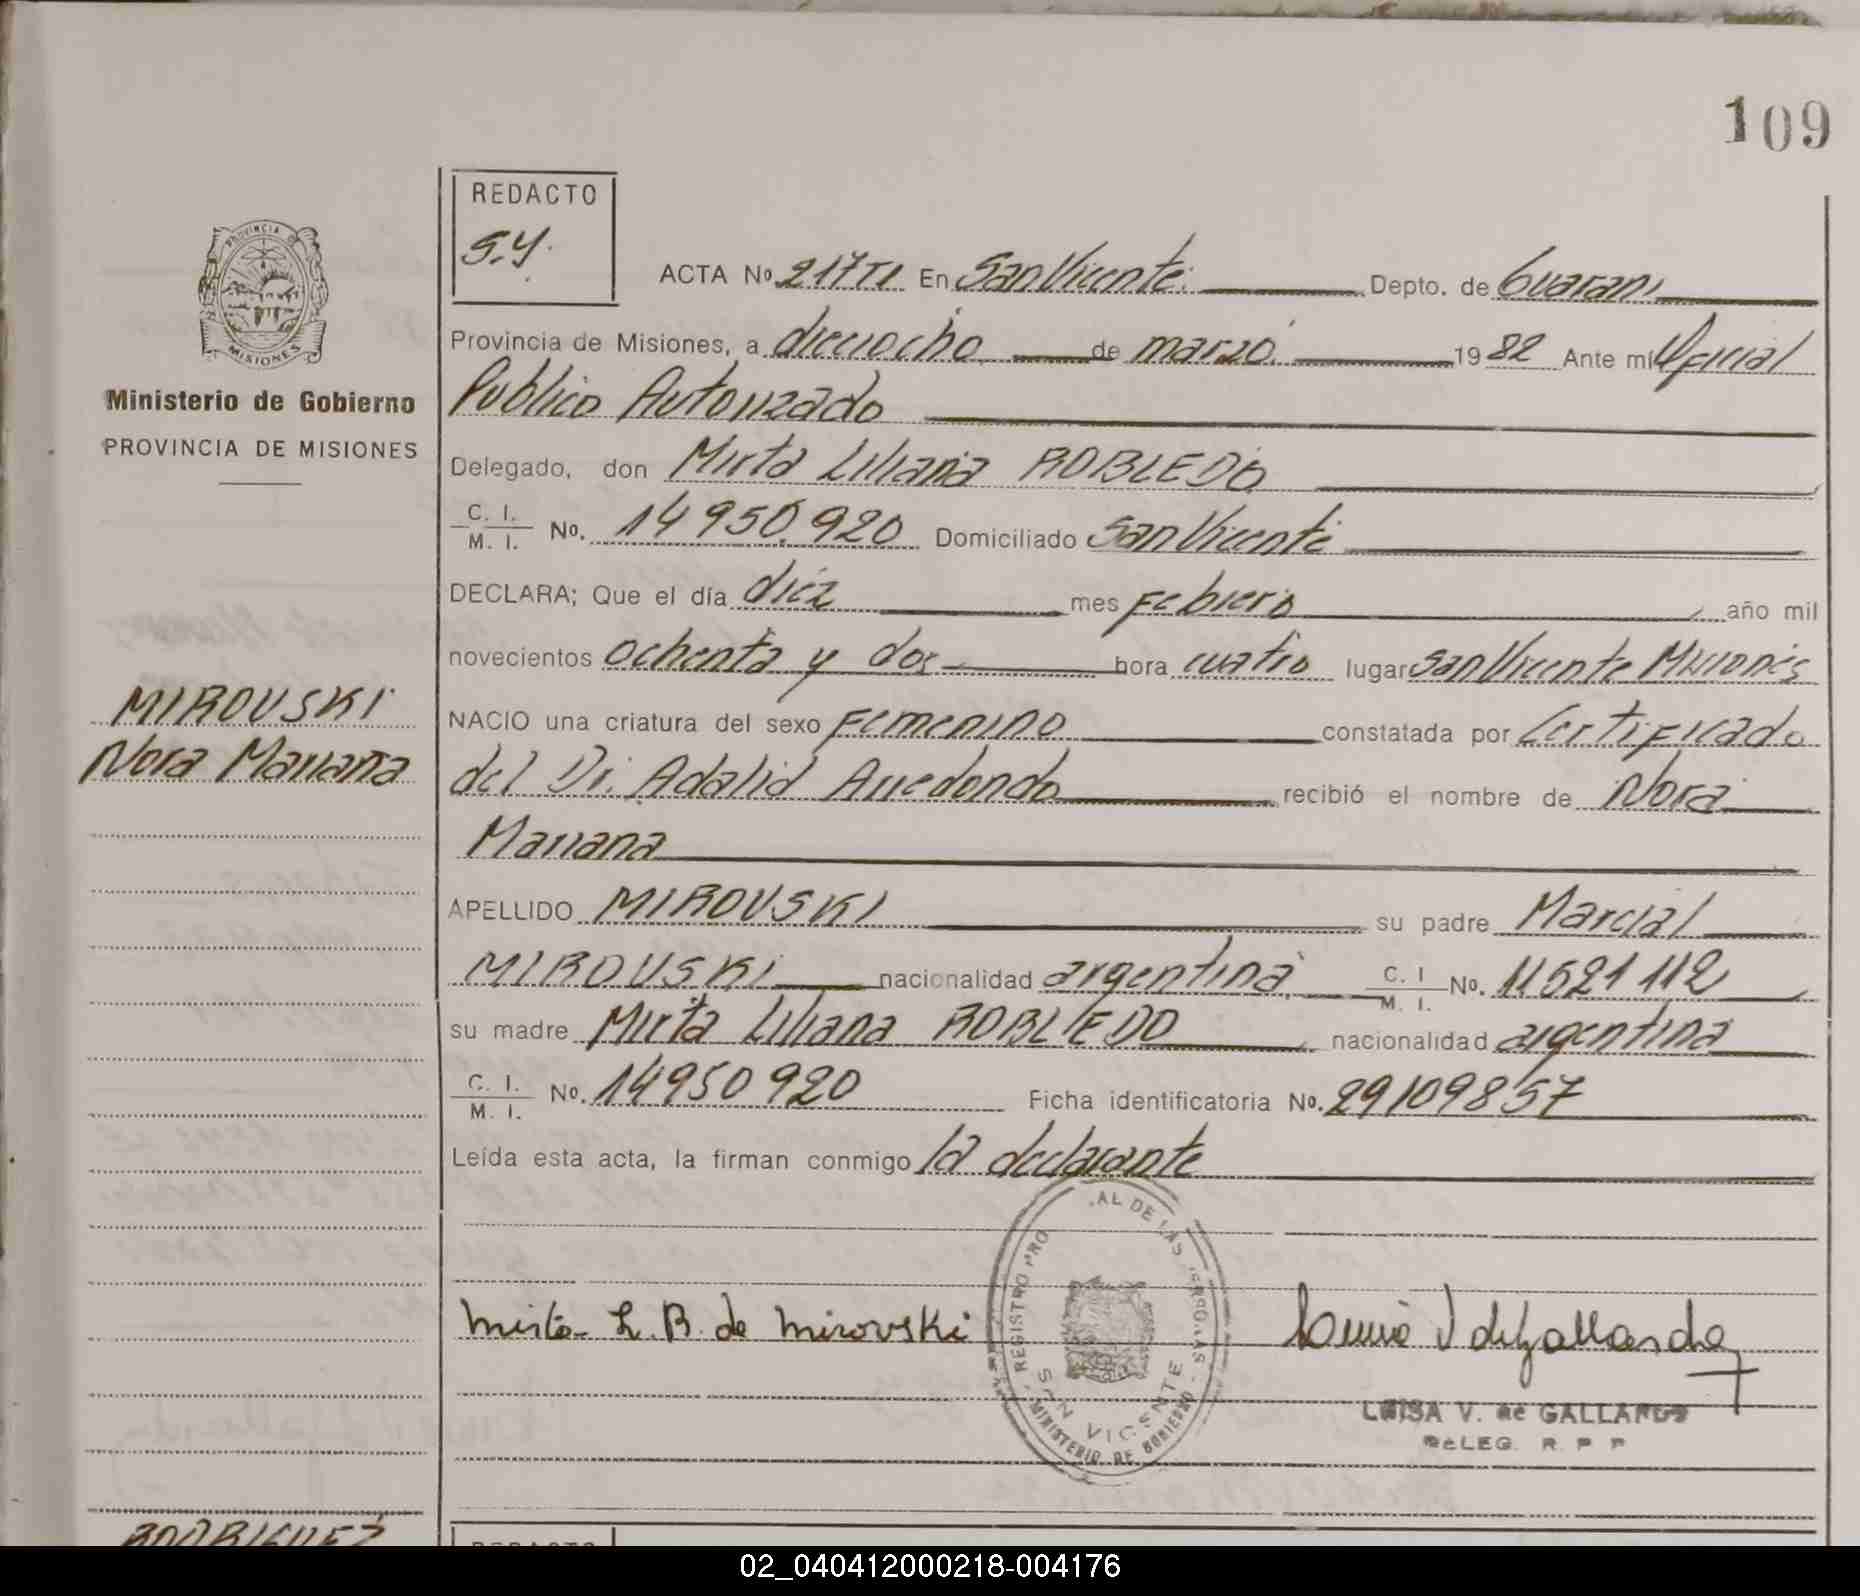 109
REDACTO
S.Y.
ACTA No. 217 T1 En San Vicente. Depto. de Guarani
Provincia de Misiones, a dieciocho de marzo 1982 Ante mí Oficial
Publico Autorizado
Delegado, don Mirta Liliana ROBLEDO
C. I.
M. I. No. 14950.920 Domiciliado San Vicente
DECLARA; Que el día diez mes Febrero año mil
novecientos ochenta y dos hora cuatro lugar San Vicente Misiones
NACIO una criatura del sexo Femenino constatada por Certificado
del Dr. Adalid Arredondo recibió el nombre de Nora
Mariana
APELLIDO MIROVSKI su padre Marcial
MIROVSKI nacionalidad argentina C. I
M. I. No. 11521112
su madre Mirta Liliana ROBLEDO nacionalidad argentina
C. I.
M. I. No. 14950920 Ficha identificatoria No. 29109857
Leída esta acta, la firman conmigo la declarante
PROVINCIA DE
MISIONES
Ministerio de Gobierno
PROVINCIA DE MISIONES
MIROVSKI
Nora Mariana
Mirta L. R. de Mirovski
REGISTRO PRO AL DE LAS PERSONAS
SAN VICENTE
MINISTERIO DE GOBIERNO
Luisa V de Gallardo
LUISA V. de GALLARDO
DELEG. R. P. P
RODRIGUEZ
REDACTO
02_040412000218-004176